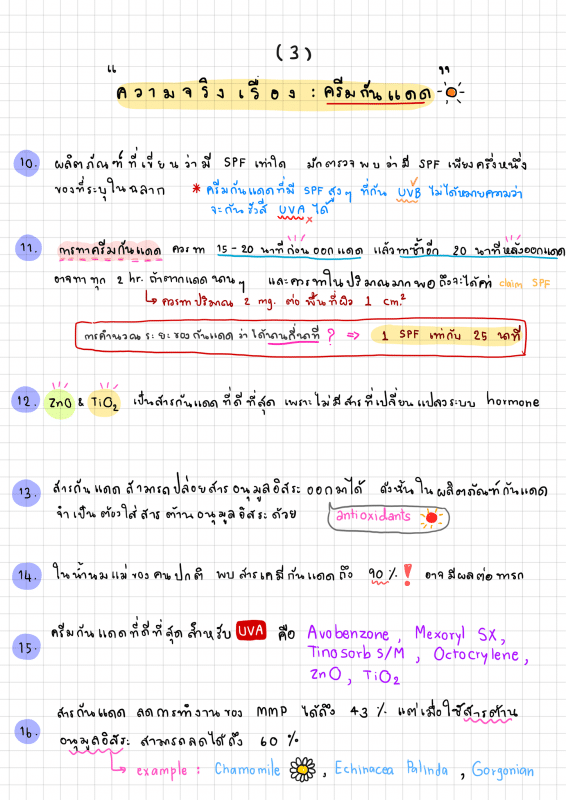 (3)
" ความจริงเรื่อง : ครีมกันแดด "
10. ผลิตภัณฑ์ที่เขียนว่ามี SPF เท่าใด มักตรวจพบว่ามี SPF เพียงครึ่งหนึ่ง
ของที่ระบุในฉลาก * ครีมกันแดดที่มี SPF สูงๆ ที่กัน UVB ไม่ได้หมายความว่า
จะกันรังสี UVA ได้
11. การทาครีมกันแดด ควรทา 15-20 นาทีก่อนออกแดด แล้วทาซ้ำอีก 20 นาทีหลังออกแดด
อาจทาทุก 2 hr. ถ้าตากแดดนานๆ และควรทาในปริมาณมากพอ ถึงจะได้ค่า claim SPF
ควรทาปริมาณ 2 mg. ต่อ พื้นที่ผิว 1 cm.²
การคำนวณระยะของกันแดดว่าได้นานกี่นาที ? ⇒ 1 SPF เท่ากับ 25 นาที
12. ZnO & TiO₂ เป็นสารกันแดดที่ดีที่สุด เพราะไม่มีสารที่เปลี่ยนแปลงระบบ hormone
13. สารกันแดดสามารถปล่อยสารอนุมูลอิสระออกมาได้ ดังนั้นในผลิตภัณฑ์กันแดด
จำเป็นต้องใส่สารต้านอนุมูลอิสระด้วย antioxidants
14. ในน้ำนมแม่ของคนปกติ พบสารเคมีกันแดดถึง 90 % ! อาจมีผลต่อทารก
15. ครีมกันแดดที่ดีที่สุดสำหรับ UVA คือ Avobenzone, Mexoryl SX,
Tinosorb S/M, Octocrylene,
ZnO, TiO₂
16. สารกันแดด ลดการทำงานของ MMP ได้ถึง 43 % แต่เมื่อใช้สารต้าน
อนุมูลอิสระ สามารถลดได้ถึง 60 %
example : Chamomile, Echinacea Pallinda, Gorgonian